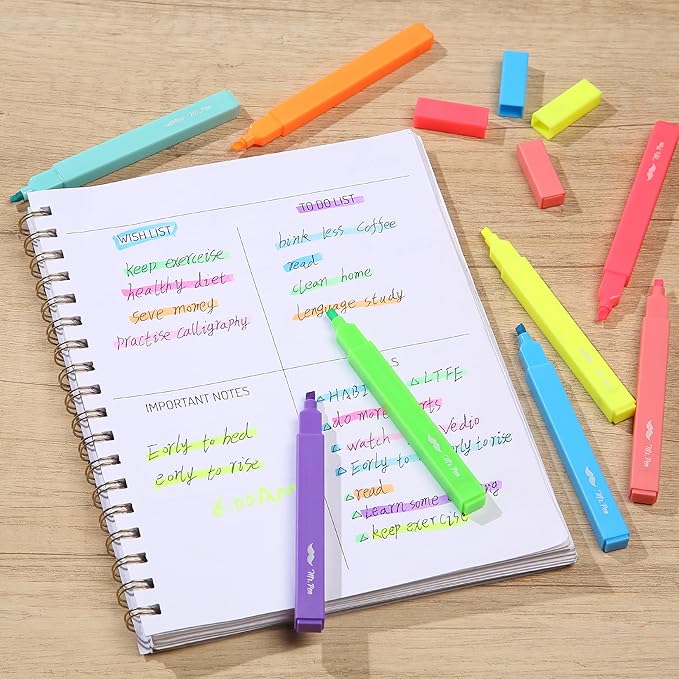 WISH LIST
keep exerceise
healthy diet
seve money
practise calligraphy
TO DO LIST
bink less coffee
read
clean home
lenguage study
IMPORTANT NOTES
Eorly to bed
eorly to rise
6:00 Am
HABI LTFE
do more
watch Vedio
Eorly to rly to rise
read
Learn some
keep exercise
Mr. Pen
Mr. Pen
Mr. Pen
Mr. Pen
Mr. Pen
Mr. Pen
Mr. Pen